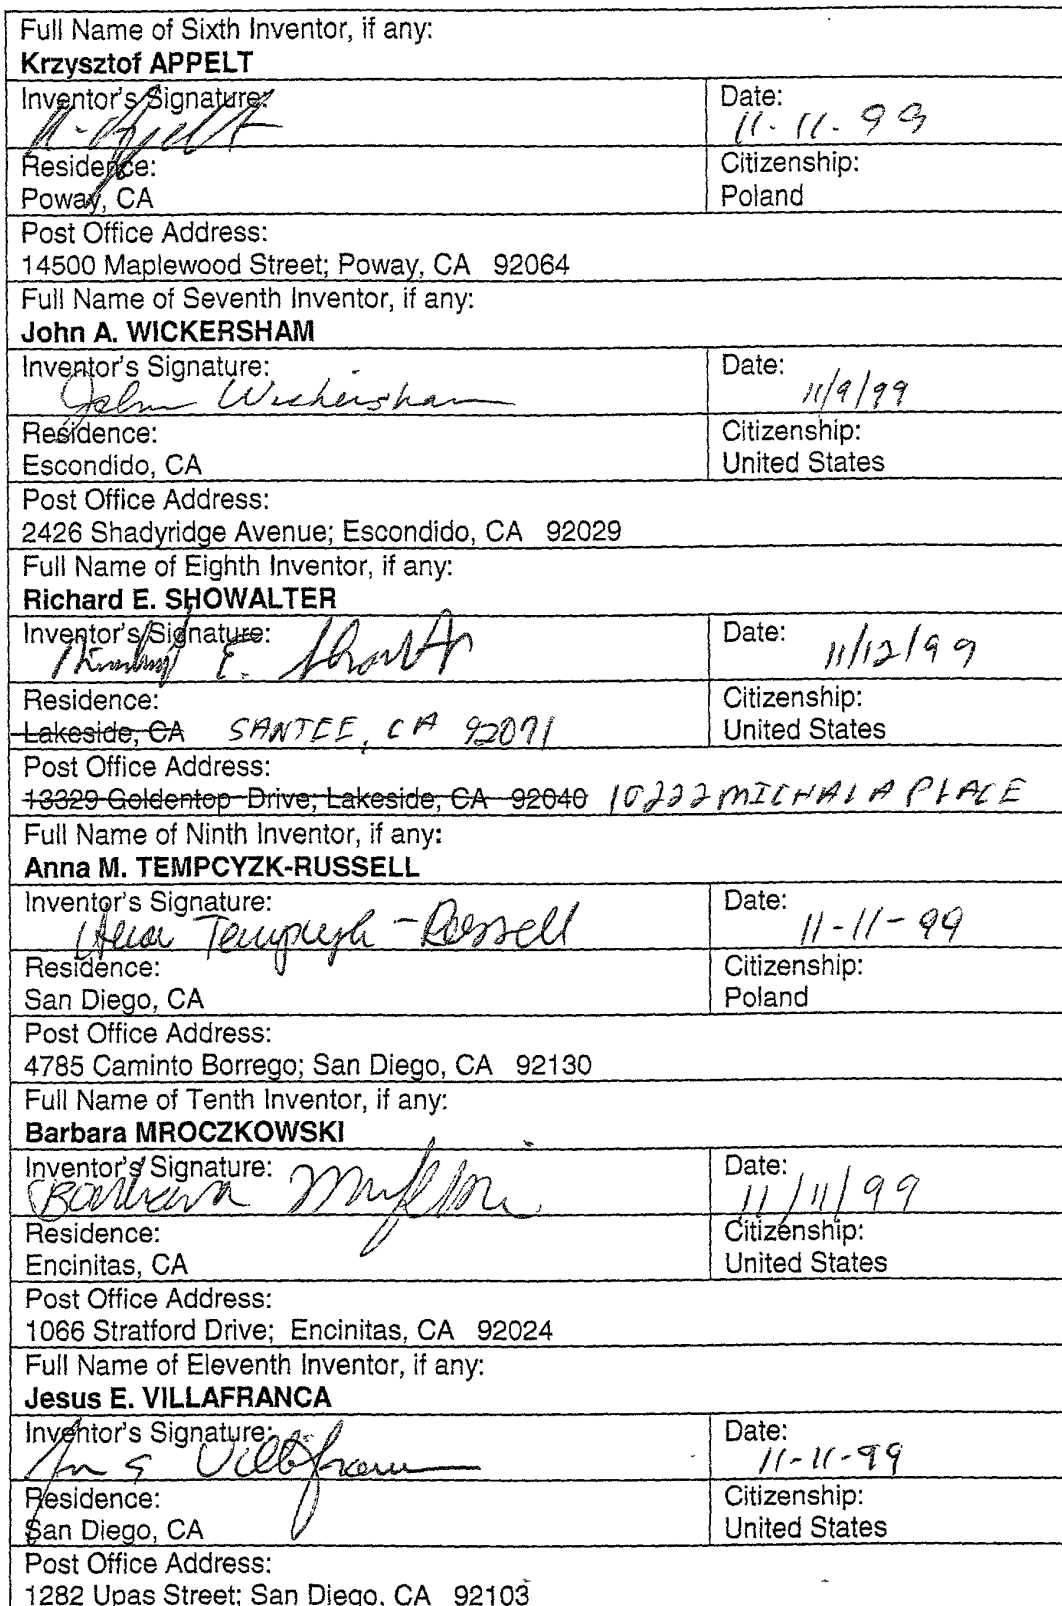 Full Name of Sixth Inventor, if any:
Krzysztof APPELT
Inventor's Signature: Date:
K. Appelt 11-11-99
Residence: Citizenship:
Poway, CA Poland
Post Office Address:
14500 Maplewood Street; Poway, CA 92064
Full Name of Seventh Inventor, if any:
John A. WICKERSHAM
Inventor's Signature: Date:
John Wickersham 11/9/99
Residence: Citizenship:
Escondido, CA United States
Post Office Address:
2426 Shadyridge Avenue; Escondido, CA 92029
Full Name of Eighth Inventor, if any:
Richard E. SHOWALTER
Inventor's Signature: Date:
E. 11/12/99
Residence: Citizenship:
Lakeside, CA SANTEE, CA 92071 United States
Post Office Address:
13329 Goldentop Drive; Lakeside, CA 92040 10222 MICHALA PLACE
Full Name of Ninth Inventor, if any:
Anna M. TEMPCYZK-RUSSELL
Inventor's Signature: Date:
Anna Tempczyk-Russell 11-11-99
Residence: Citizenship:
San Diego, CA Poland
Post Office Address:
4785 Caminto Borrego; San Diego, CA 92130
Full Name of Tenth Inventor, if any:
Barbara MROCZKOWSKI
Inventor's Signature: Date:
Barbara 11/11/99
Residence: Citizenship:
Encinitas, CA United States
Post Office Address:
1066 Stratford Drive; Encinitas, CA 92024
Full Name of Eleventh Inventor, if any:
Jesus E. VILLAFRANCA
Inventor's Signature: Date:
Villafranca 11-11-99
Residence: Citizenship:
San Diego, CA United States
Post Office Address:
1282 Upas Street; San Diego, CA 92103